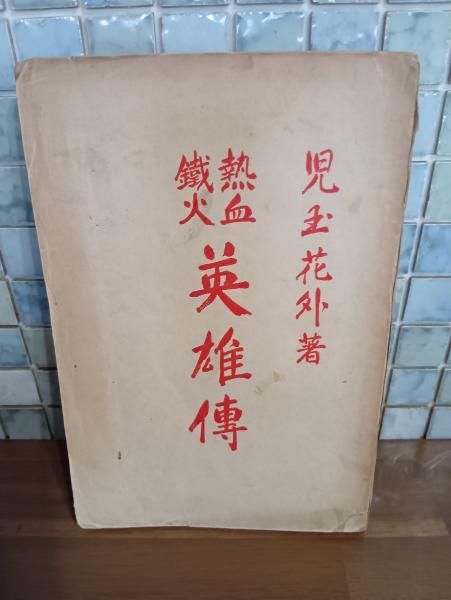 児玉花外著
熱血
鐵火
英雄傳